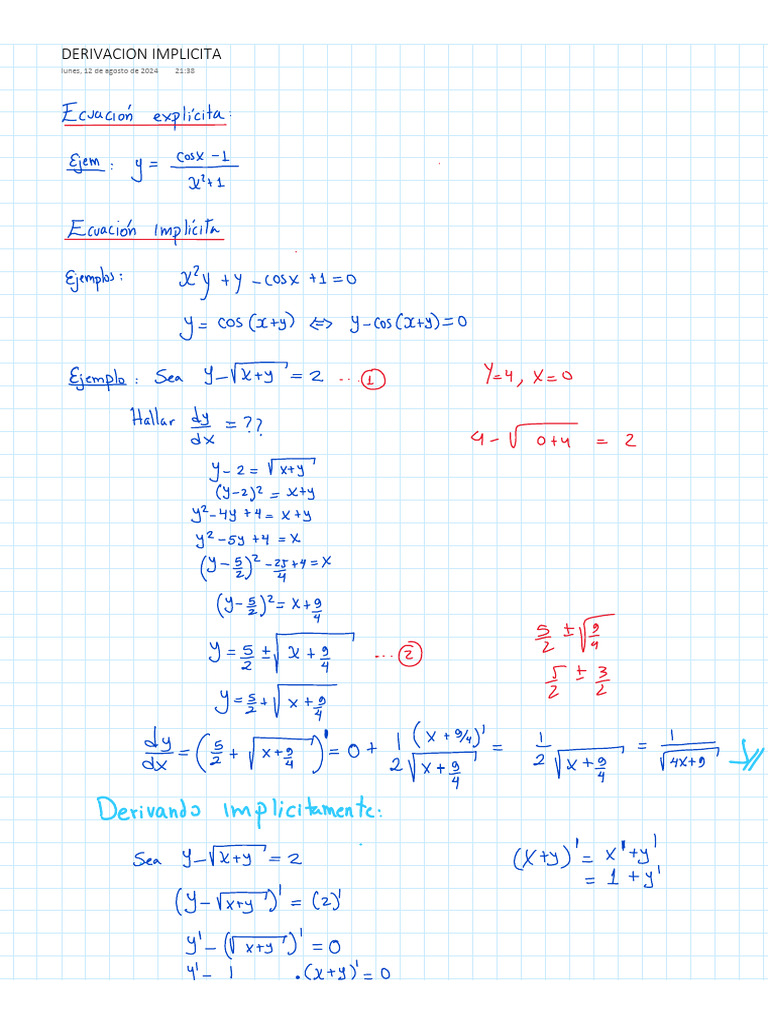 DERIVACION IMPLICITA
lunes, 12 de agosto de 2024 21:38
Ecuación explícita:
Ejem: y = (cosx - 1)/(x²+1)
Ecuación Implícita
Ejemplos: x²y + y - cosx + 1 = 0
y = cos(x+y) ⇔ y - cos(x+y) = 0
Ejemplo: Sea y - √(x+y) = 2 ... ①
Y=4, X=0
Hallar dy/dx = ??
4 - √(0+4) = 2
y - 2 = √(x+y)
(y-2)² = x+y
y² - 4y + 4 = x+y
y² - 5y + 4 = x
(y - 5/2)² - 25/4 + 4 = x
(y - 5/2)² = x + 9/4
5/2 ± √(9/4)
y = 5/2 ± √(x + 9/4) ... ②
5/2 ± 3/2
y = 5/2 + √(x + 9/4)
dy/dx = (5/2 + √(x + 9/4))' = 0 + 1(x + 9/4)'/(2√(x + 9/4)) = 1/(2√(x + 9/4)) = 1/√(4x+9)
Derivando implicitamente:
Sea y - √(x+y) = 2
(x+y)' = x' + y'
= 1 + y'
(y - √(x+y))' = (2)'
y' - (√(x+y))' = 0
y' - 1 · (x+y)' = 0